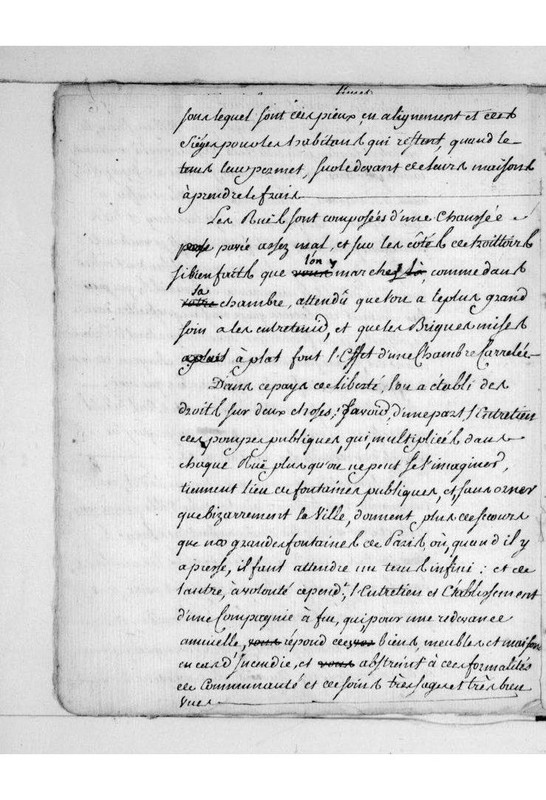 Rues
sous lequel sont des pieux, en alignement et des
sièges pour les habitans qui restent, quand le
tems leur permet, sur le devant de leurs maisons
à prendre le frais
Les Rues sont composées d'une Chaussée
pavée assez mal, et sur les côtés de trottoirs
si bien faits que l'on y marche, comme dans
sa chambre, attendû que l'on a le plus grand
soin à les entretenir, et que les Briques mises
à plat font l'Effet d'une Chambre Carrelée
Dans ce pays de liberté, l'on a établi des
droits sur deux choses; Savoir, d'une part l'Entretien
des pompes publiques, qui, multipliées dans
chaque Ruë plus qu'on ne peut se l'imaginer,
tiennent lieu de fontaines publiques, et, sans orner
que bizarrement la Ville, donnent plus de secours
que nos grandes fontaines de Paris où, quand il y
a presse, il faut attendre un tems infini: et de
l'autre, à volonté cepend.t, l'Entretien et Etablissement
d'une Compagnie à feu, qui pour une redevance
annuelle, répond des biens, meubles et maison
en cas d'Incendie, et astreint à des formalités
de Communauté et de soins très sages et très bien
vues